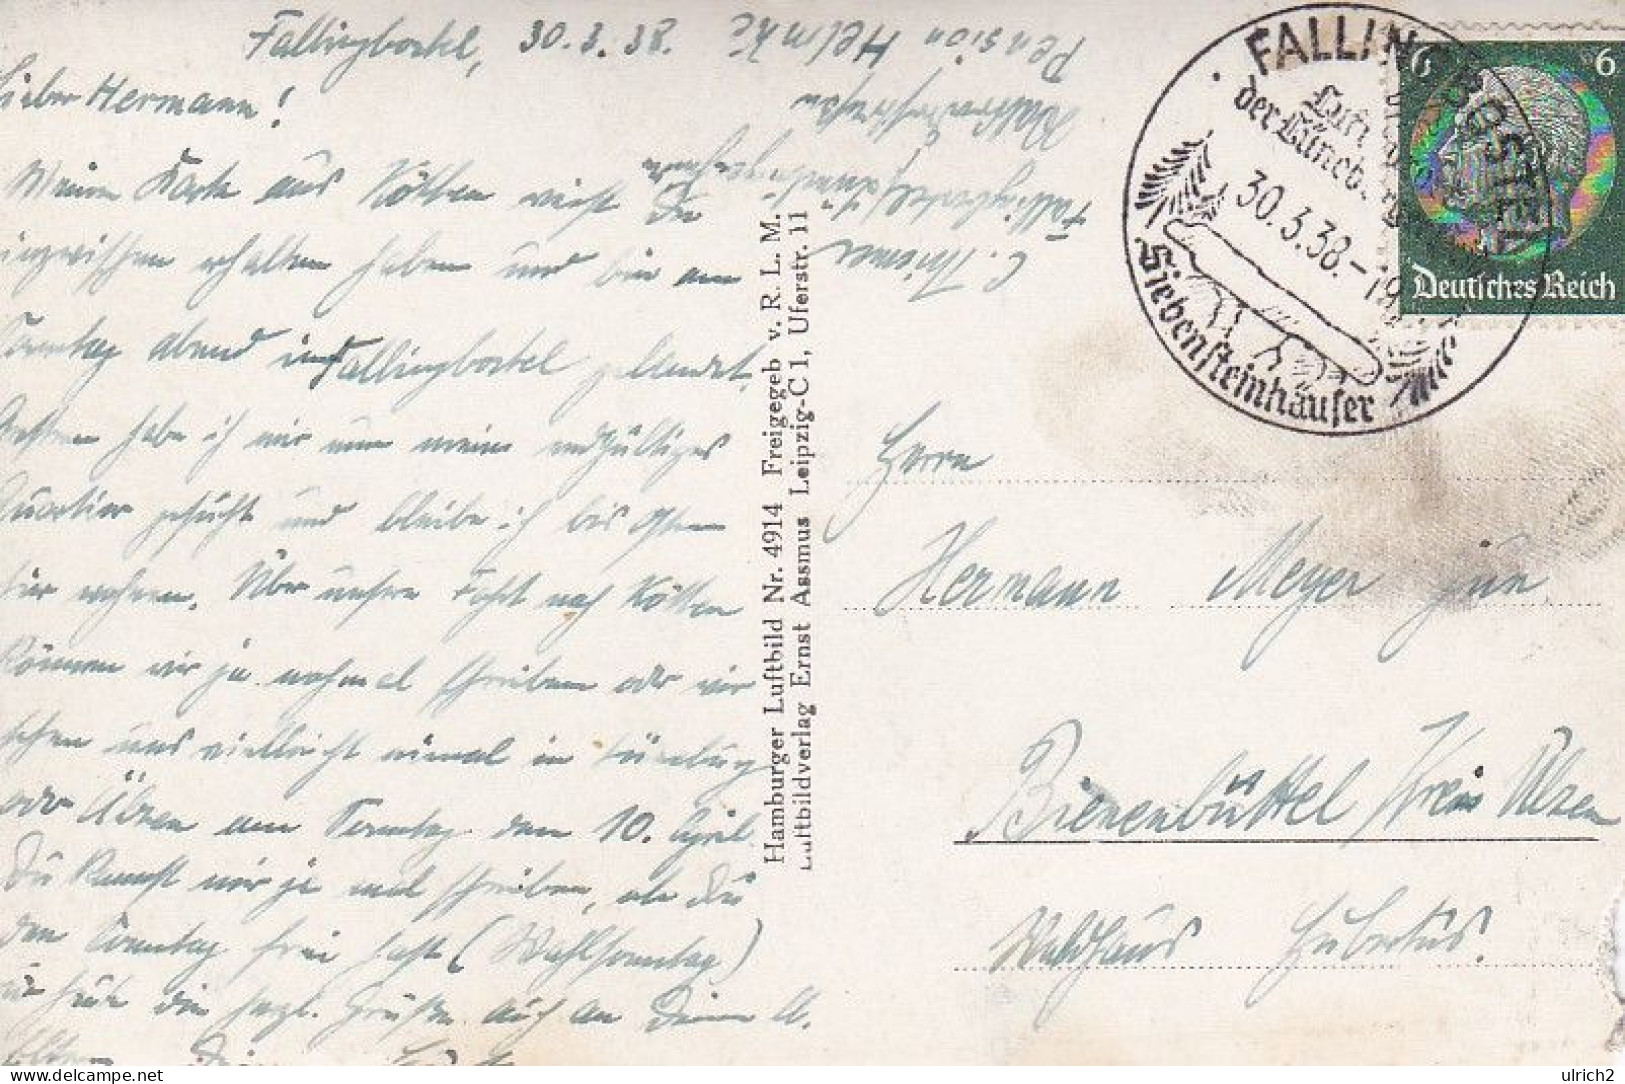 Fallingbostel, 30.3.38.
Lieber Hermann!
Meine Karte aus Köthen wirst Du
inzwischen erhalten haben und bin am
Sonntag abend in Fallingbostel gelandet.
Gestern habe ich mir nun mein endgültiges
Quartier gesucht und bleibe ich bis Ostern
hier wohnen. Über unsere Fahrt nach Köthen
können wir ja nochmal schreiben oder wir
sehen uns vielleicht einmal in Lüneburg
oder Ülzen am Sonntag den 10. April.
Du kannst mir ja mal schreiben, ob Du
den Sonntag frei hast (Wahlsonntag)
für heute die herzl. Grüße auch an Deine
Eltern
C. Thiemer
Fallingbostel
Pension Helmke
Hamburger Luftbild Nr. 4914 Freigegeb v. R. L. M.
Luftbildverlag Ernst Assmus Leipzig-C 1, Uferstr. 11
FALLINGBOSTEL
Luft
der Lüneb.
30.3.38.-19
Siebensteinhäuser
6 6
Deutsches Reich
Herrn
Hermann Meyer jun.
Bienenbüttel Kreis Ülzen
Waldhaus Hubertus.
ulrich2